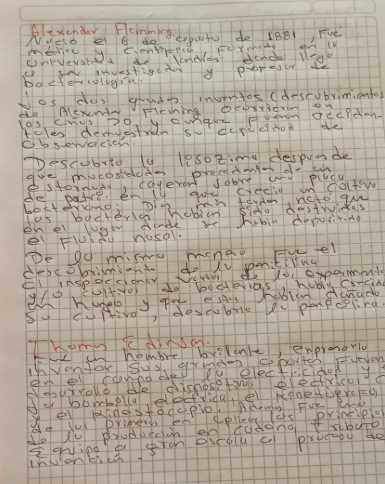 Alexander Flemming
Nacio el 6 de agosto de 1881, Fue
medico y Cientifico Formado en la
Universidad de londres donde llego
a ser investigador y profesor de
bacteriologia.
Los dos grandes inventos (descubrimientos
de Alexander Fleming ocurrieron en
los años 20 y aunque Fueron acciden-
tales demuestran su capacidad de
Observacion.
Descubrio la lesozima despues de
que mucosidades procedentes de un
estornudo, cayeran sobre una placa
de petri en la que crecia un cultivo
bacteriano. Dias mas tarde noto que
las bacterias habian sido destruidas
en el lugar donde se habia depositado
el Fluido nasal.
De la misma manera Fue el
descubrimiento de la penicilina
Al inspeccionar varios de los experimento
y/o cultivos de bacterias habia crecido
un hongo y que este habian dañado
su cultivo, descubrio la
Thomas Edinson.
Fue un hombre brillante, enpresario
inventor sus grandes aportes Fueron
en el campo de la electricidad y el
desarrollo de dispositivos electricos
la bombilla electrica, el
y el Ademas Fue uno
de los primeros en aplicar los principios
de la produccion en cadena trabajo
Equipo a gran escala al proceso de
invencion.